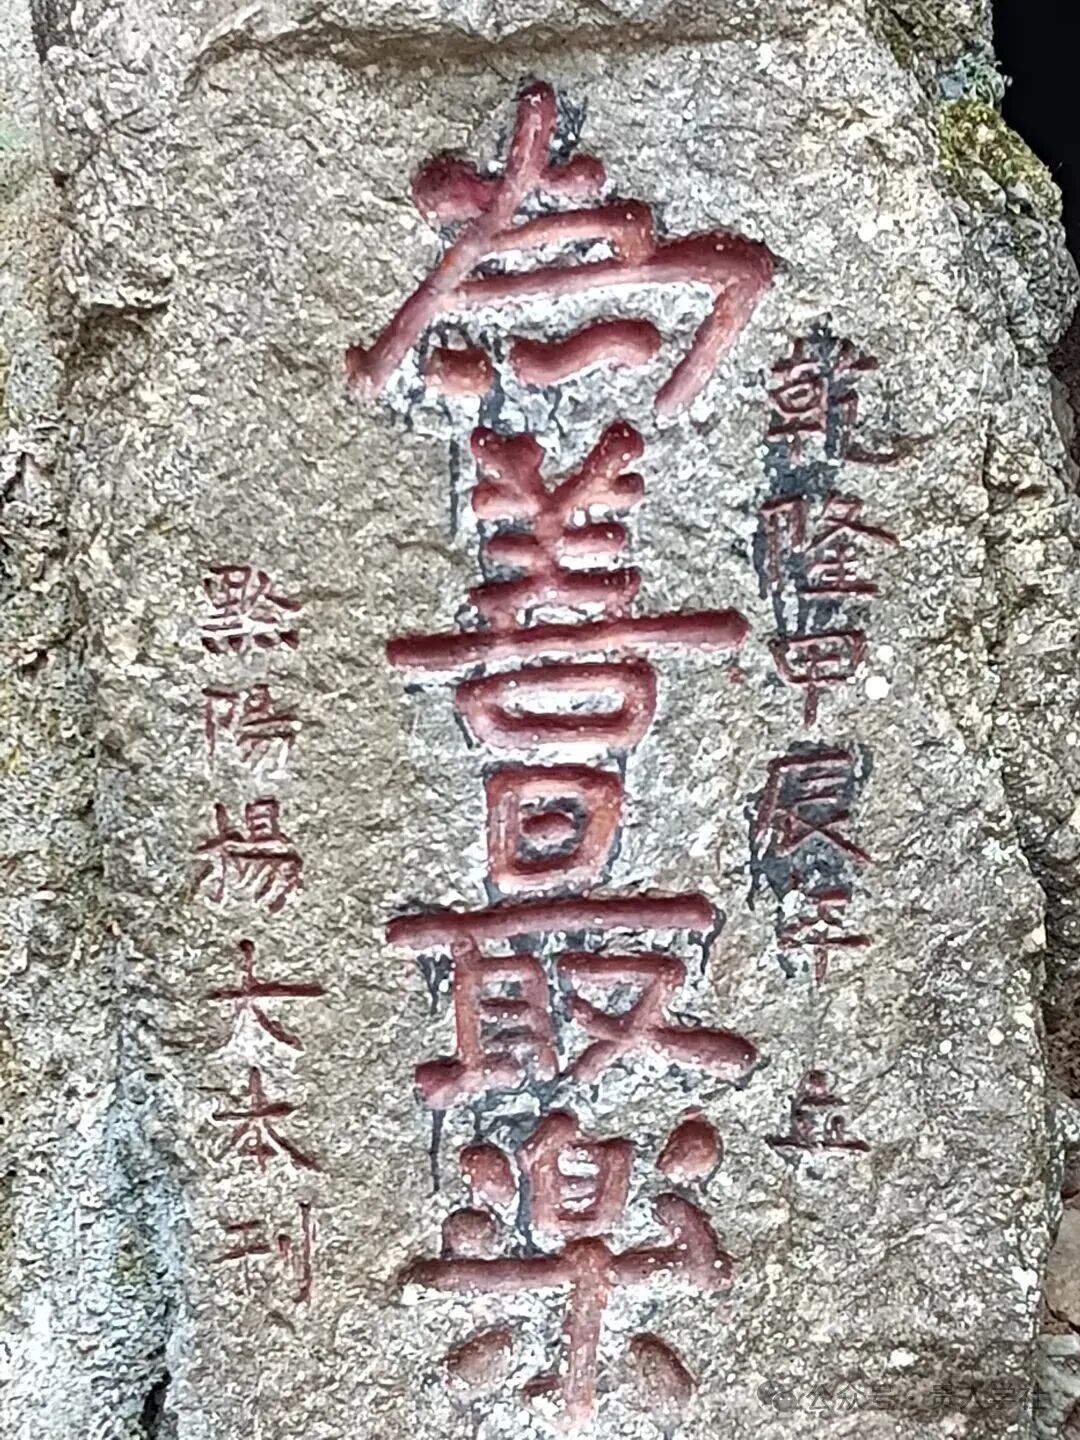 乾隆甲辰年立
為善最樂
黔陽楊大本刊
公众号·贵人学社